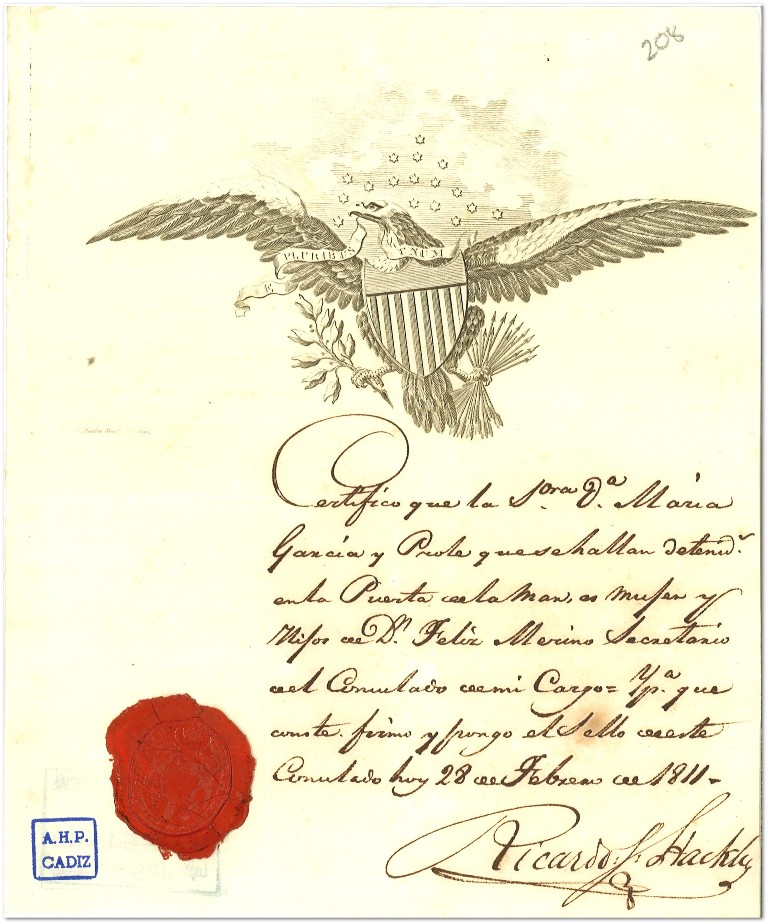 208
E PLURIBUS UNUM
Certifico que la S.ora D.a Maria
Garcia y Prole que se hallan detenid.s
en la Puerta de la Mar, es Muger y
Hijos de D.n Feliz Merino Secretario
del Consulado de mi Cargo = Y p.a que
conste firmo y pongo el Sello de este
Consulado hoy 28 de Febrero de 1811 -
Ricardo S. Hackley
A.H.P.
CADIZ